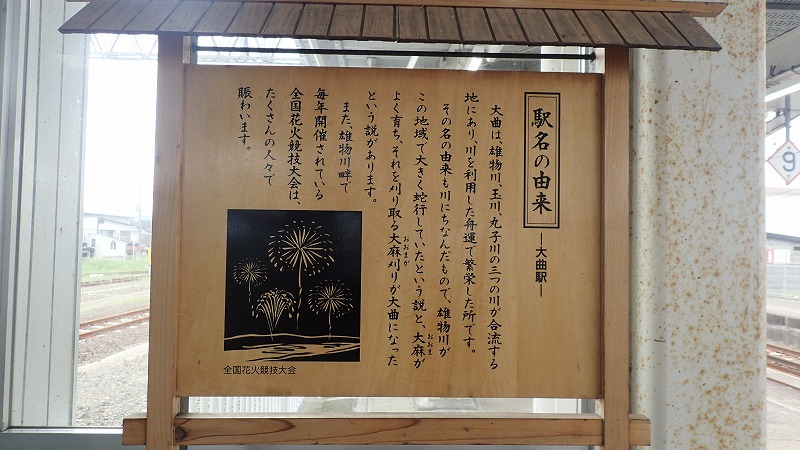 駅名の由来
―大曲駅―
大曲は、雄物川、玉川、丸子川の三つの川が合流する
地にあり、川を利用した舟運で繁栄した所です。
その名の由来も川にちなんだもので、雄物川が
この地域で大きく蛇行していたという説と、大麻が
おおま
よく育ち、それを刈り取る大麻刈りが大曲になった
おおまが
という説があります。
また、雄物川畔で
毎年開催されている
全国花火競技大会は、
たくさんの人々で
賑わいます。
全国花火競技大会
9